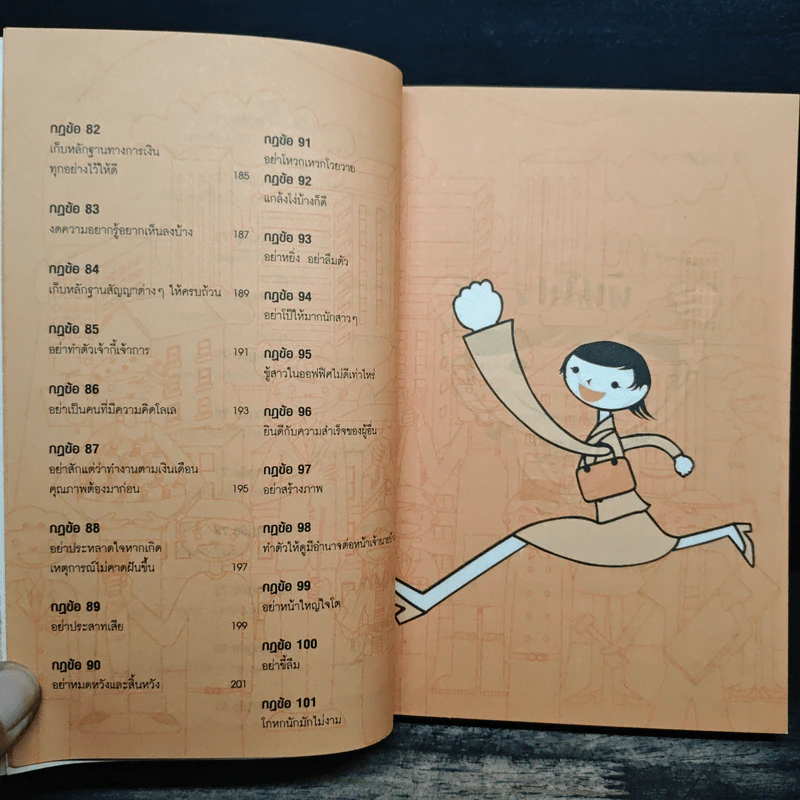 กฎข้อ 82
เก็บหลักฐานทางการเงิน
ทุกอย่างไว้ให้ดี 185
กฎข้อ 83
งดความอยากรู้อยากเห็นลงบ้าง 187
กฎข้อ 84
เก็บหลักฐานสัญญาต่างๆ ให้ครบถ้วน 189
กฎข้อ 85
อย่าทำตัวเจ้ากี้เจ้าการ 191
กฎข้อ 86
อย่าเป็นคนที่มีความคิดโลเล 193
กฎข้อ 87
อย่าสักแต่ว่าทำงานตามเงินเดือน
คุณภาพต้องมาก่อน 195
กฎข้อ 88
อย่าประหลาดใจหากเกิด
เหตุการณ์ไม่คาดฝันขึ้น 197
กฎข้อ 89
อย่าประสาทเสีย 199
กฎข้อ 90
อย่าหมดหวังและสิ้นหวัง 201
กฎข้อ 91
อย่าโหวกเหวกโวยวาย
กฎข้อ 92
แกล้งโง่บ้างก็ดี
กฎข้อ 93
อย่าหยิ่ง อย่าลืมตัว
กฎข้อ 94
อย่าโป๊ให้มากนักสาวๆ
กฎข้อ 95
ชู้สาวในออฟฟิศไม่ดีเท่าไหร่
กฎข้อ 96
ยินดีกับความสำเร็จของผู้อื่น
กฎข้อ 97
อย่าสร้างภาพ
กฎข้อ 98
ทำตัวให้ดูมีอำนาจต่อหน้าเจ้านาย
กฎข้อ 99
อย่าหน้าใหญ่ใจโต
กฎข้อ 100
อย่าขี้ลืม
กฎข้อ 101
โกหกนักมักไม่งาม